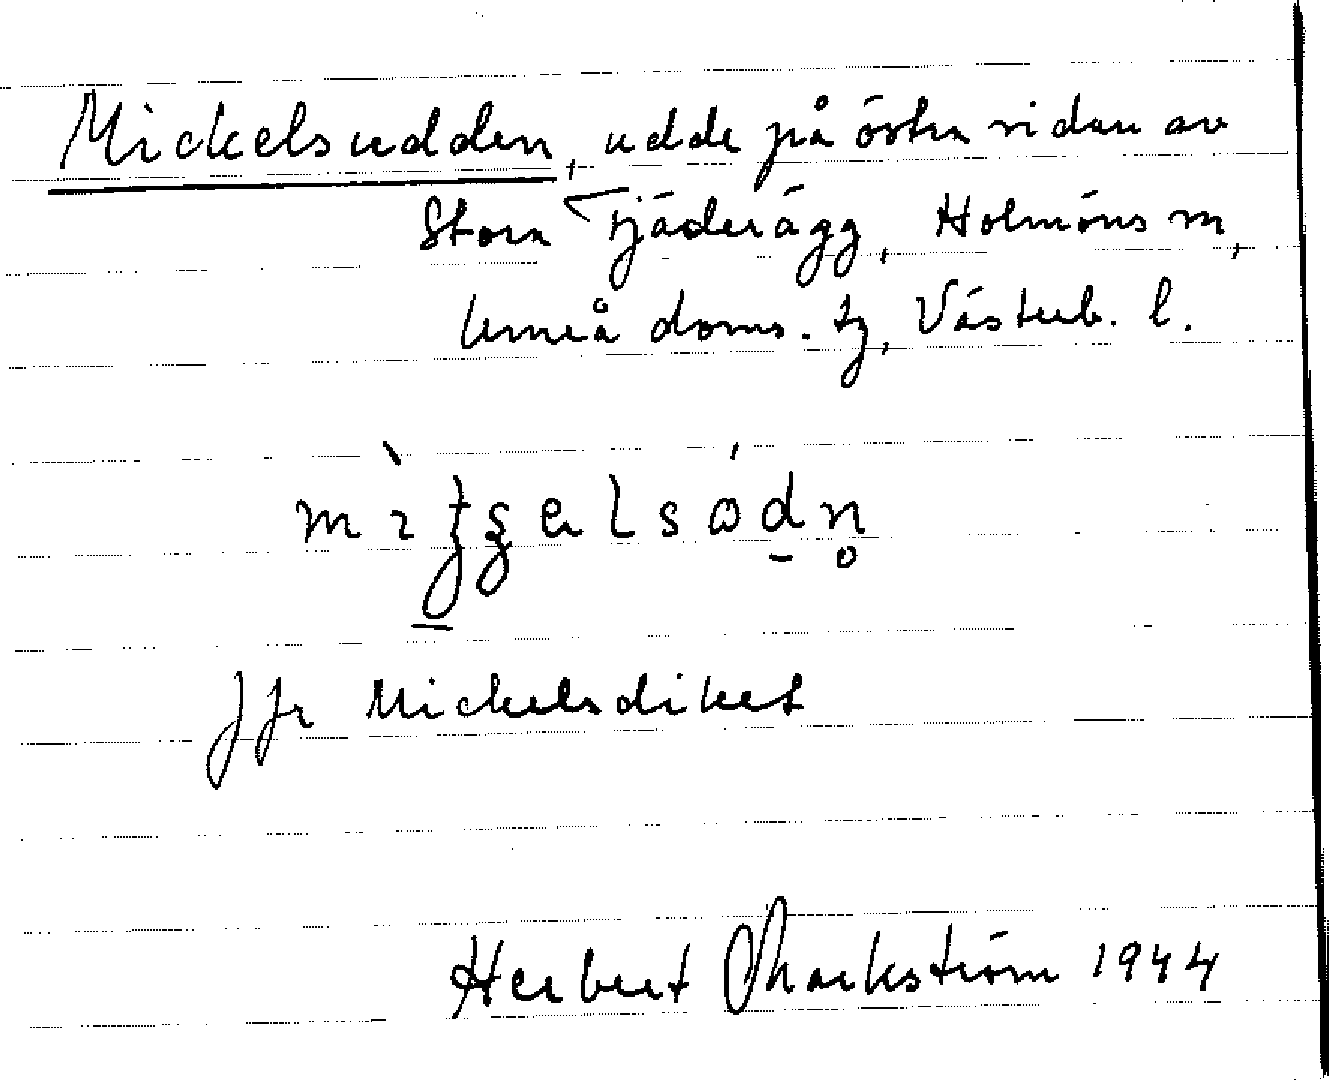 Mickelsudden, udde på östra sidan av
Stora Fjäderägg, Holmöns sn,
Umeå doms. tg, Västerb. l.
Jfr Mickelsdiket
Herbert Markström 1944